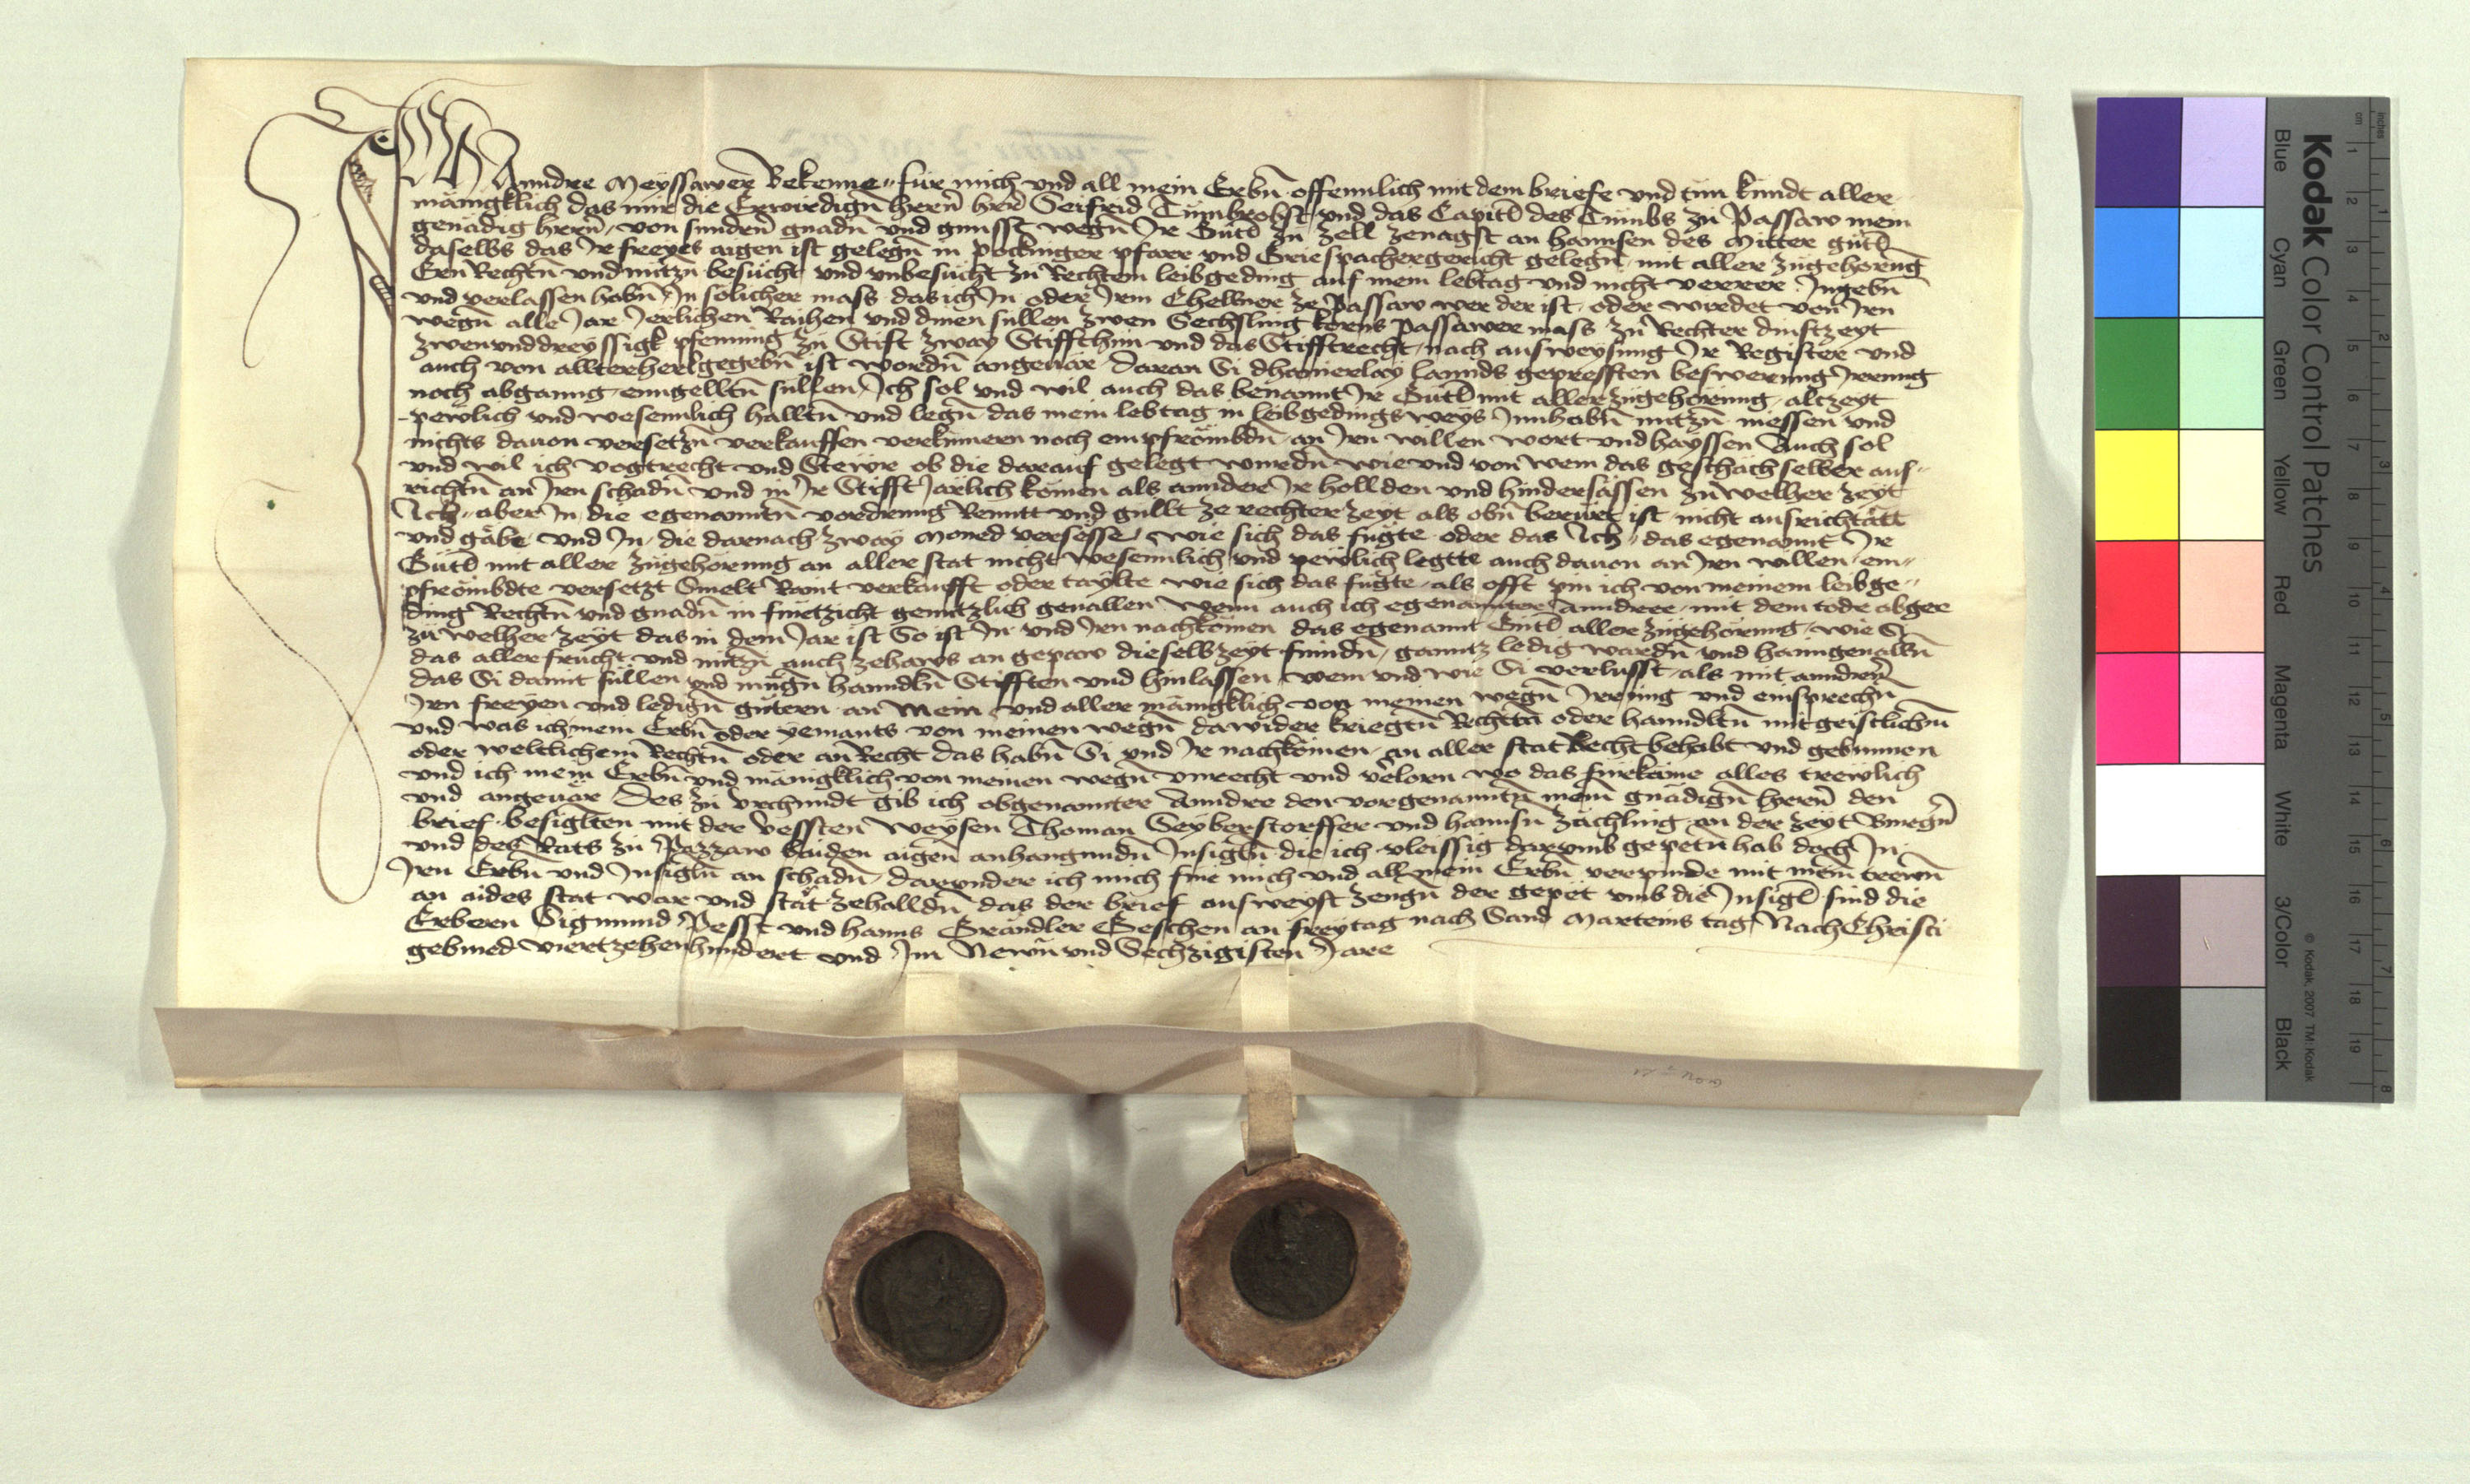 Ich Anndre Meyssawer Bekenne für mich und all mein Erbn̄ offennlich mit dem briefe und tün kündt aller
mänigklich das mir die Erwirdign̄ herrn̄ her Seifrid Tumbrobst und das Capitl des Tumbs zü Passaw mein
genädig herrn̄ von sundern̄ gnadn̄ und gunsst wegn̄ Ir Gütl zü Zell zenagst an hannsen des Mitter gütl
daselbs das Ir freyes aigen ist gelegn̄ in pockinger pfarr und Griespachergericht gelegn̄ mit aller zügehorūg
Ern Rechtn̄ und nutzn̄ besücht und unbesücht zü Rechtem leibgeding auf mein lebtag und nicht verrer Ingebn̄
und verlassen habn̄ In sölicher mass das ich In oder Irm Chellner ze Passaw wer der ist oder wirdet von Irn
wegn̄ alle Jar Jerlichen Raihen und dinen süllen zwen Sechsling korns Passawer mass zü Rechter dinstzeyt
zwenunddreyssigk pfenning zü Stift zway Stiffthün und das Stifftrecht nach ausweysung Ir Register und
auch von allterherkgegebn̄ ist wordn̄ angeuär daran Si dhainerlay lannds gepresten beswerung Irrung
noch abganng enngelltn̄ süllen Ich sol und wil auch das benannt Ir Gütl mit aller zügehörung alczeyt
pewlich und wesennlich halltn̄ und legn̄ das mein lebtag in leibgedings weys Innhabn̄ nutzn̄ niessen und
nichts dauon versetzn̄ verkauffen verkumern noch empfrömbdn̄ an Irn willen wort und hayssen Auch sol
und wil ich vogtrecht und Stewr ob die darauf gelegt wurdn̄ wie und von wem das geschäch selber aus
richtn̄ an Irn schadn̄ und in Ir Stifft Järlich kömen als annder Ir hollden und hindersässen Zü welher zeyt
Ich aber In die egenanntn̄ vordrung Rennt und gullt ze rechter zeyt als obn̄ berürt ist nicht ausrichtätt
und gäbe und In die darnach zway moned versësse wie sich das fügte oder das Ich das egenannt Ir
Gütl mit aller zügehörung an aller stat nicht wesennlich und pewlich legtte auch dauon an Irn willen em
pfrömbdte versetzt Smelt Raint verkaufft oder taylte wie sich das fügte als offt pin ich von meinem leibge
ding Rechtn̄ und gnadn̄ in fürtzicht genntzlich geuallen Wenn auch ich egenannter Anndree mit dem tode abgee
zü welher zeyt das in dem Jar ist So ist In und Irn nachkömen das egenannt Gütl aller zügehörung wie Si
das aller frucht und nutzn̄ auch zehaws an gepaw dieselbzeyt finndn̄ ganntz ledig wordn̄ und haimgeualln̄
das Si damit süllen und mügn̄ hanndln̄ Stifften und hinlassen wem und wie Si verlusst als mit anndern̄
Irn freyen und ledign̄ gütern an mein und aller mänigklich von meinen wegn̄ Irrung und einsprechn̄
und was ich mein Erbn̄ oder yemants von meinen wegn̄ dawider kriegtn̄ Rechttn̄ oder hanndltn̄ mit geistlichm̄
oder weltlichem Rechtn̄ oder an Recht das habn̄ Si und Ir nachkömen an aller stat Recht behabt und gebunnen
und ich mein Erbn̄ und mänigklich von meinen wegn̄ unrecht und velorn wo das fürkäme alles trewlich
und angeuär Des zü urchundt gib ich obgenannter Anndre den vorgenanntn̄ mein gnädign̄ herrn̄ den
brief besiglten mit der vessten weysen Thoman Seyberstorffer und hannsn̄ Zächling an der zeyt Burgn̄
und des Rats zü Pazzaw baiden aigen̄ anhangundn̄ Insigln̄ die ich vleissig darumb gepetn̄ hab doch In
Irn Erbn̄ und Insigln̄ an schadn̄ darunder ich mich für mich und all mein Erbn̄ verpinde mit mein̄ trewn̄
an aides stat war und stät zehalldn̄ das der brief ausweyst zeugn̄ der gepët umb die Insigl sind die
Erbern Sigmund Pesst und hanns Grändler Geschen an freytag nach Sand Marteins tag Nach Christi
geburd viertzehenhundert und Im Newn̄ und Sechzigisten Jare
Kodak Color Control Patches
Blue Cyan Green Yellow Red Magenta White 3/Color Black
© Kodak, 2007 TM: Kodak
cm 1 2 3 4 5 6 7 8 9 10 11 12 13 14 15 16 17 18 19
inches 1 2 3 4 5 6 7 8